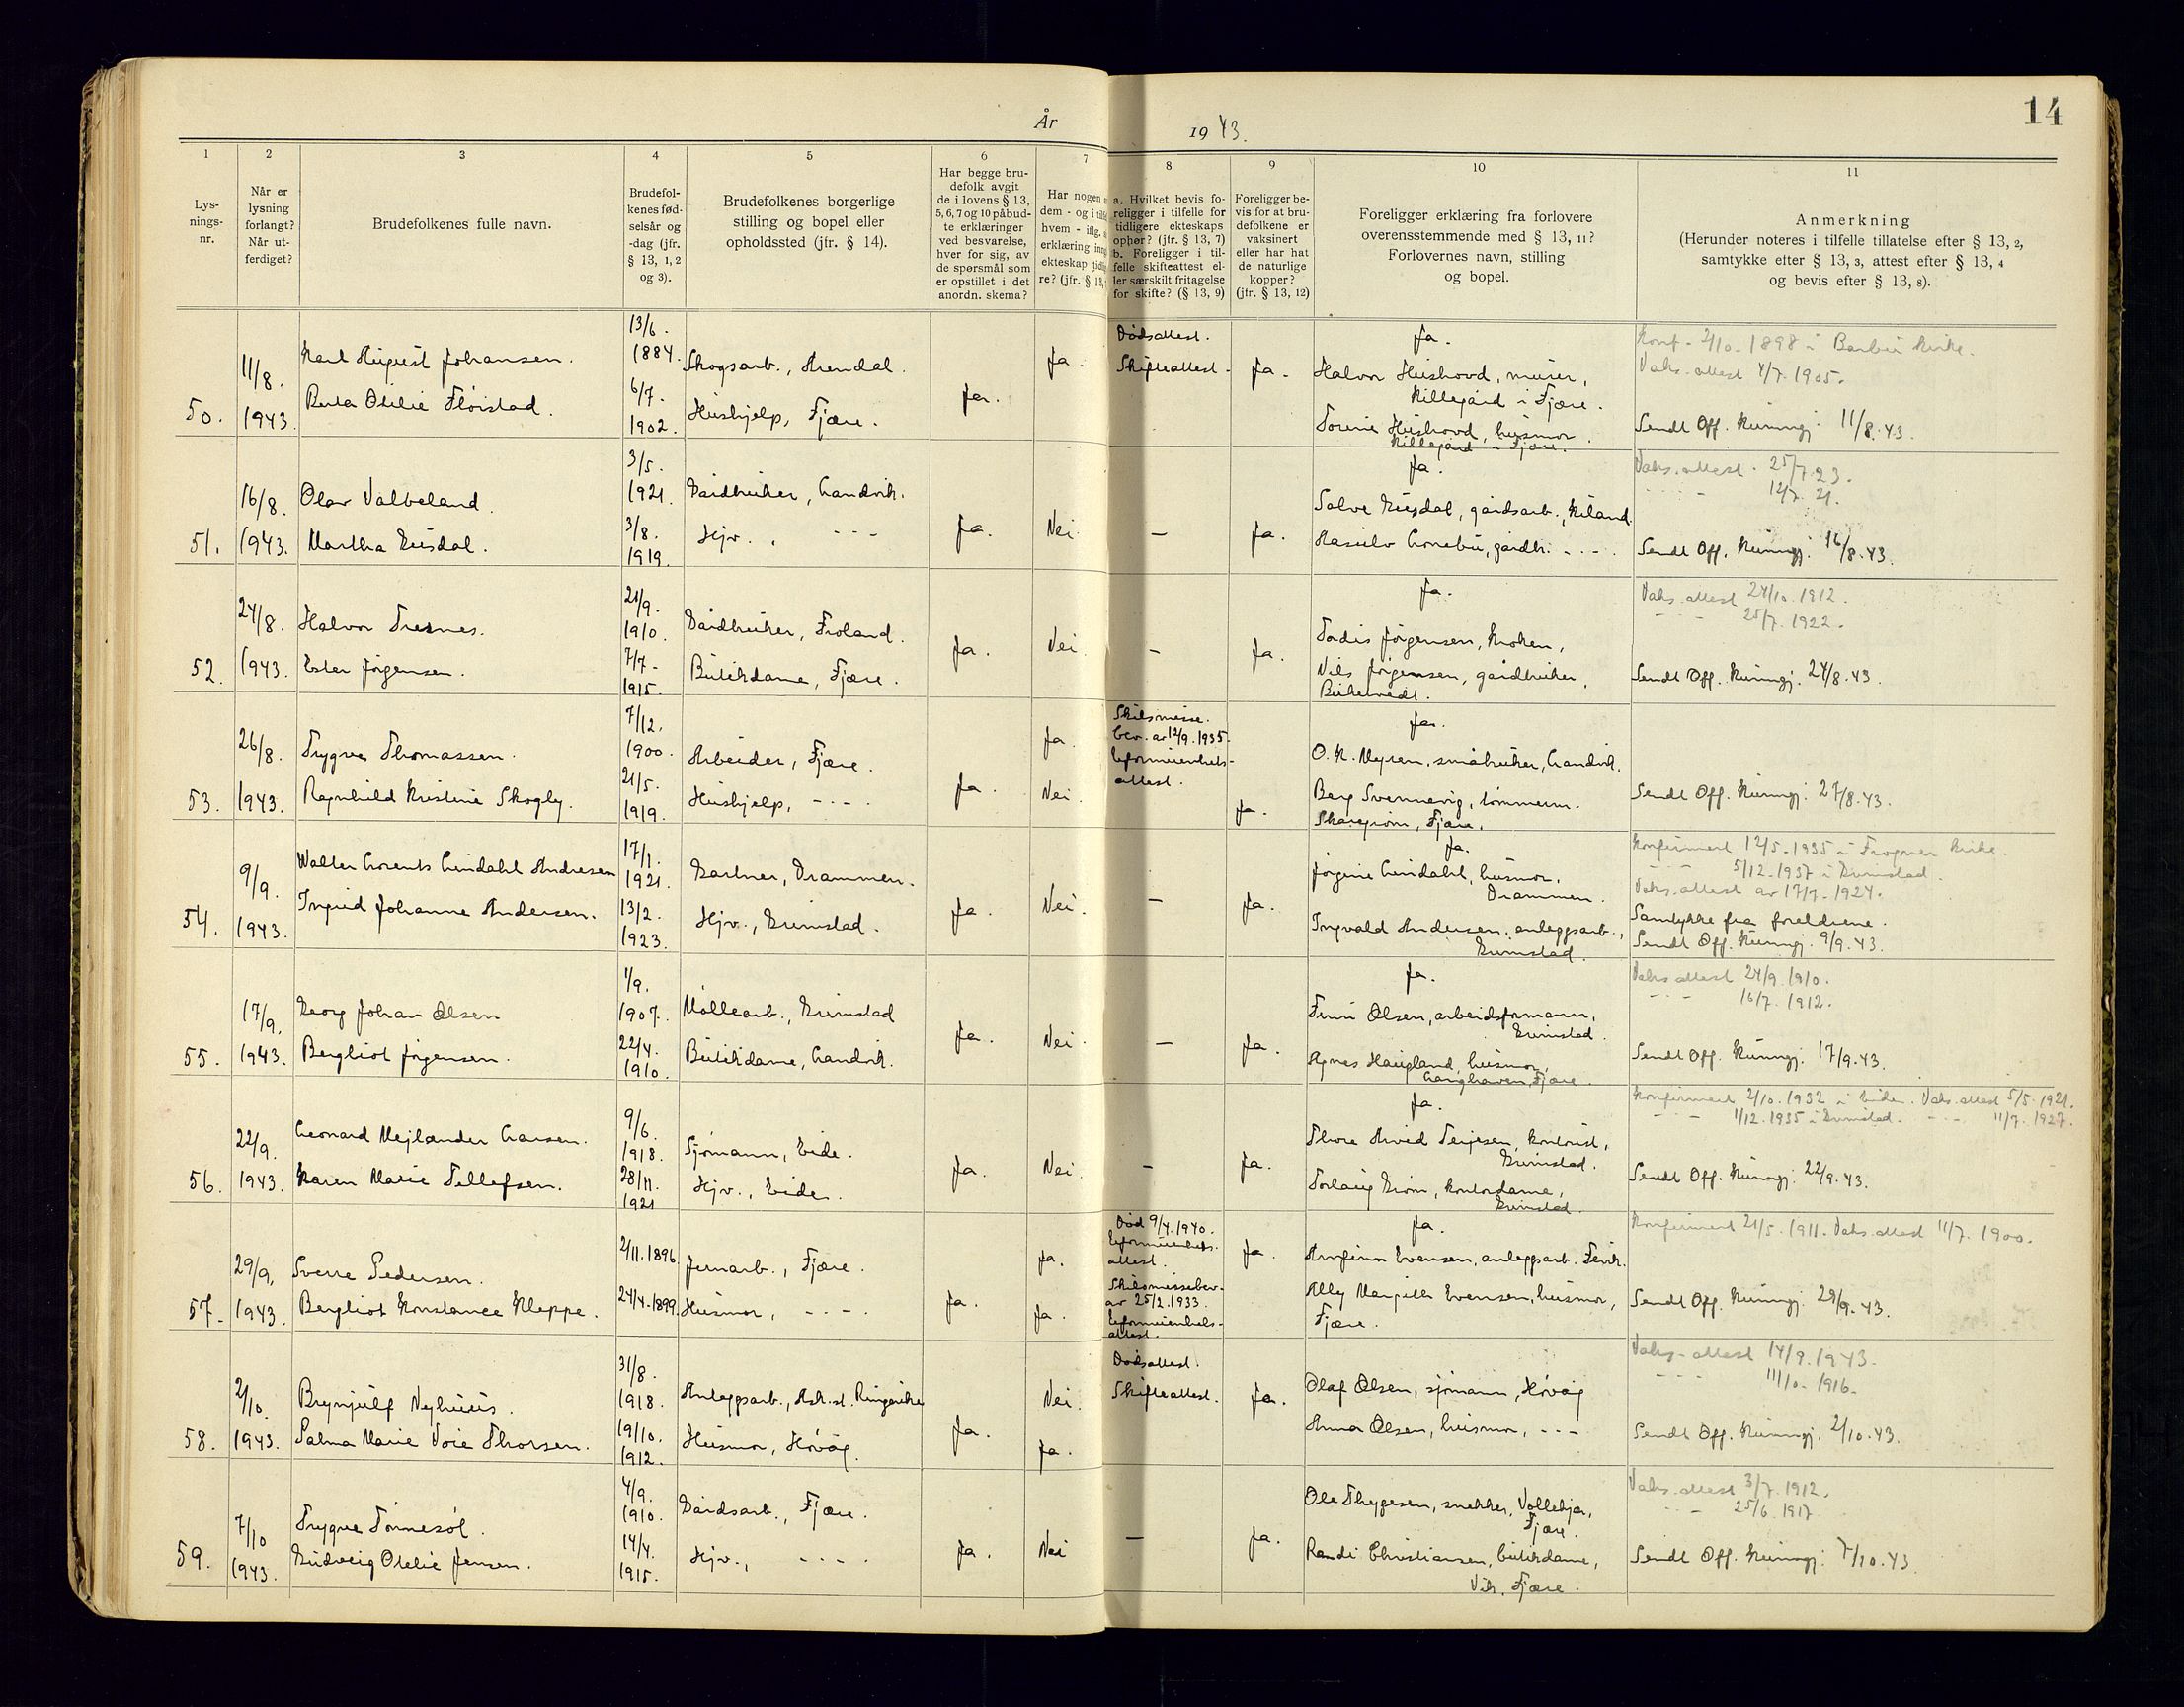 14
År 1943.
1
2
3
4
5
6
7
8
9
10
11
Lys-
nings-
nr.
Når er
lysning
forlangt?
Når ut-
ferdiget?
Brudefolkenes fulle navn.
Brudefol-
kenes fød-
selsår og
-dag (jfr.
§ 13, 1, 2
og 3).
Brudefolkenes borgerlige
stilling og bopel eller
opholdssted (jfr. § 14).
Har begge bru-
defolk avgit
de i lovens § 13,
5, 6, 7 og 10 påbud-
te erklæringer
ved besvarelse,
hver for sig, av
de spørsmål som
er opstillet i det
anordn. skema?
Har nogen
dem - og i
hvem - iflg.
erklæring
ekteskap
re? (jfr. § 13,
a. Hvilket bevis fo-
religger i tilfelle for
tidligere ekteskaps
ophør? (jfr. § 13, 7)
b. Foreligger i til-
felle skifteattest el-
ler særskilt fritagelse
for skifte? (§ 13, 9)
Foreligger be-
vis for at bru-
defolkene er
vaksinert
eller har hat
de naturlige
kopper?
(jfr. § 13, 12)
Foreligger erklæring fra forlovere
overensstemmende med § 13, 11?
Forlovernes navn, stilling
og bopel.
Anmerkning
(Herunder noteres i tilfelle tillatelse efter § 13, 2,
samtykke efter § 13, 3, attest efter § 13, 4
og bevis efter § 13, 8).
50.
11/8.
1943.
Karl August Johansen.
Berta Otilie Fløistad.
13/6.
1884.
6/7.
1902.
Skogsarb., Arendal.
Hushjelp, Fjære.
Ja.
Ja.
Dødsattest.
Skifteattest.
Ja.
Ja.
Halvor Hushovd, murer,
Killegård i Fjære.
Torine Hushovd, husmor.
Killegård i Fjære.
Konf. 2/10. 1898 i Barbu kirke.
Vaks. attest 4/7. 1905.
Sendt Off. Kunngj. 11/8. 43.
51.
16/8.
1943.
Olav Valbeland.
Martha Gusdal.
3/5.
1921.
3/8.
1919.
Gårdbruker, Landvik.
Hjv. , - - -
Ja.
Nei.
—
Ja.
Ja.
Salve Gusdal, gårdsarb.,
gårdbr. - - -
Vaks. attest. 25/7. 23.
12/7. 21.
Sendt Off. Kunngj. 16/8. 43.
52.
24/8.
1943.
Halvor Tresnes.
Ester Jørgensen.
21/9.
1910.
7/7.
1915.
Gårdbruker, Froland.
Butikdame, Fjære.
Ja.
Nei.
—
Ja.
Ja.
Tordis Jørgensen, Kroken,
Nils Jørgensen, gårdbruker,
Vaks. attest 24/10. 1912.
- - - 25/7. 1922.
Sendt Off. Kunngj. 24/8. 43.
53.
26/8.
1943.
Trygve Thomassen.
Ragnhild Kristine Skogly.
7/12.
1900.
21/5.
1919.
Arbeider, Fjære.
Hushjelp, - - -
Ja.
Ja.
Nei.
Skilsmisse.
bev. av 12/9. 1935.
Uformuenhets-
attest.
Ja.
Ja.
O. K. Myren, småbruker, Landvik.
Berg Svennevig, tømmerm.
Skaregrøm, Fjære.
Sendt Off. Kunngj. 27/8. 43.
54.
9/9.
1943.
Walter Lorents Lindahl Andresen
Ingrid Johanne Andersen.
17/1.
1921.
13/2.
1923.
Gartner, Drammen.
Hjv., Grimstad.
Ja.
Nei.
—
Ja.
Ja.
Jørgine Lindahl, husmor,
Drammen.
Ingvald Andersen, anleggsarb.,
Grimstad.
Konfirmert 12/5. 1935 i Frogner kirke.
- - 5/12. 1937 i Grimstad.
Vaks. attest av 17/7. 1924.
Samtykke fra foreldrene.
Sendt Off. Kunngj. 9/9. 43.
55.
17/9.
1943.
Georg Johan Olsen
Bergliot Jørgensen.
1/9.
1907.
22/4.
1910.
Møllearb., Grimstad
Butikdame, Landvik.
Ja.
Nei.
—
Ja.
Ja.
Finn Olsen, arbeidsformann,
Grimstad.
Agnes Haugland, husmor,
Langhaven, Fjære.
Vaks. attest 24/9. 1910.
- - - 16/7. 1912.
Sendt Off. Kunngj. 17/9. 43.
56.
22/9.
1943.
Leonard Mejlænder Larsen.
Karen Marie Tellefsen.
9/6.
1918.
28/11.
1921
Sjømann, Eide.
Hjv., Eide.
Ja.
Nei.
—
Ja.
Ja.
Thore Arvid Terjesen, kontorist,
Grimstad.
Torlaug Grøm, kontordame,
Grimstad.
Konfirmert 2/10. 1932 i Eide. Vaks. attest 5/5. 1921.
- - - 1/12. 1935 i Grimstad. - - - 11/7. 1927.
Sendt Off. Kunngj. 22/9. 43.
57.
29/9.
1943.
Sverre Pedersen.
Bergliot Konstance Kleppe.
2/11. 1896.
24/4. 1899.
Jernarb., Fjære.
Husmor, - - -
Ja.
Ja.
Ja.
Død 9/4. 1940.
Uformuenhets.
attest.
Skilsmissebev.
av 25/2. 1933.
Uformuenhets-
attest.
Ja.
Ja.
Arnfinn Evensen, anleggsarb. Fevik.
Ally Margith Evensen, husmor,
Fjære.
Konfirmert 21/5. 1911. Vaks. attest 11/7. 1900.
Sendt Off. Kunngj. 29/9. 43.
58.
2/10.
1943.
Brynjulf Nyhuus.
Salma Marie Voie Thorsen.
31/8.
1918.
19/10.
1912.
Anleggsarb., Ask. st. Ringerike
Husmor, Høvåg.
Ja.
Nei.
Ja.
Dødsattest.
Skifteattest.
Ja.
Olaf Olsen, sjømann, Høvåg
Anna Olsen, husmor, - - -
Vaks. attest 14/9. 1943.
- - - 11/10. 1916.
Sendt Off. Kunngj. 2/10. 43.
59.
7/10
1943.
Trygve Tønnesøl.
Gudveig Otelie Jensen.
4/9.
1910.
14/4.
1915.
Gårdsarb., Fjære.
Hjv., - - -
Ja.
Nei
—
Ja.
Ole Thygesen, snekker, Vollekjær,
Fjære.
Randi Christiansen, butikdame,
Vik, Fjære.
Vaks. attest 3/7. 1912.
- - 25/6. 1917
Sendt Off. Kunngj. 7/10. 43.